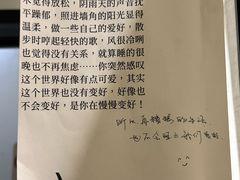 不觉得放松，阴雨天的声音抚
平躁郁，照进墙角的阳光显得
温柔，做一些自己的爱好，散
步时哼起轻快的歌，风很冷咧
也觉得没有关系，就算睡的很
晚也不再焦虑……你突然感叹
这个世界好像有点可爱，其实
这个世界也没有变好，好像也
不会变好，是你在慢慢变好！
所以 再糟糕的生活
也不会